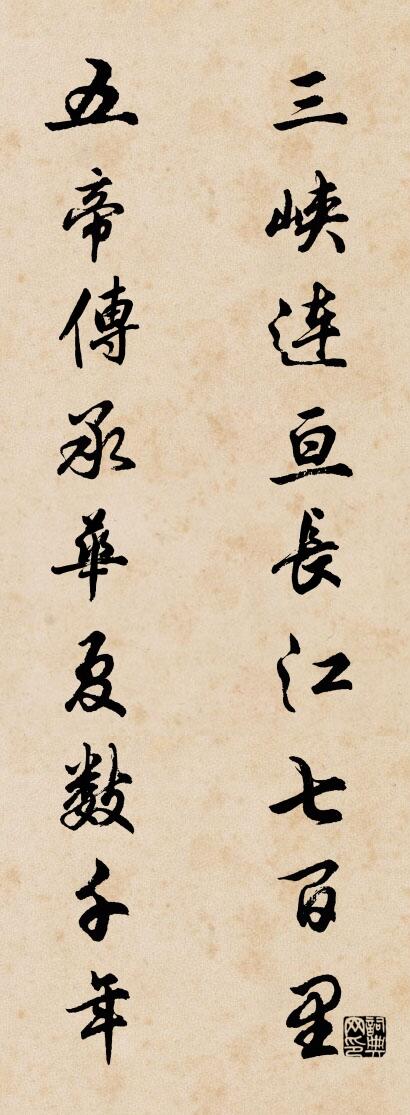 三峡连亘長江七百里
五帝傳承華夏数千年
詞典网印